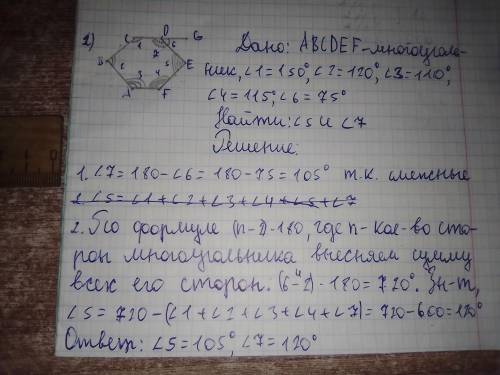 2)
C D G
1 7 6
B 2 5 E
3 4
A F
Дано: ABCDEF-многоуголь-
ник, ∠1=150°, ∠2=120°, ∠3=110°,
∠4=115°, ∠6=75°
Найти: ∠5 и ∠7
Решение:
1. ∠7=180-∠6=180-75=105° т.к. смежные
2. ∠5=∠1+∠2+∠3+∠4+∠5+∠7
2. По формуле (n-2)·180, где n-кол-во сто-
рон многоугольника выесняем сумму
всех его сторон. (6-2)·180=720°. Зн-т,
∠5=720-(∠1+∠2+∠3+∠4+∠7)=720-600=120°
Ответ: ∠5=105°, ∠7=120°